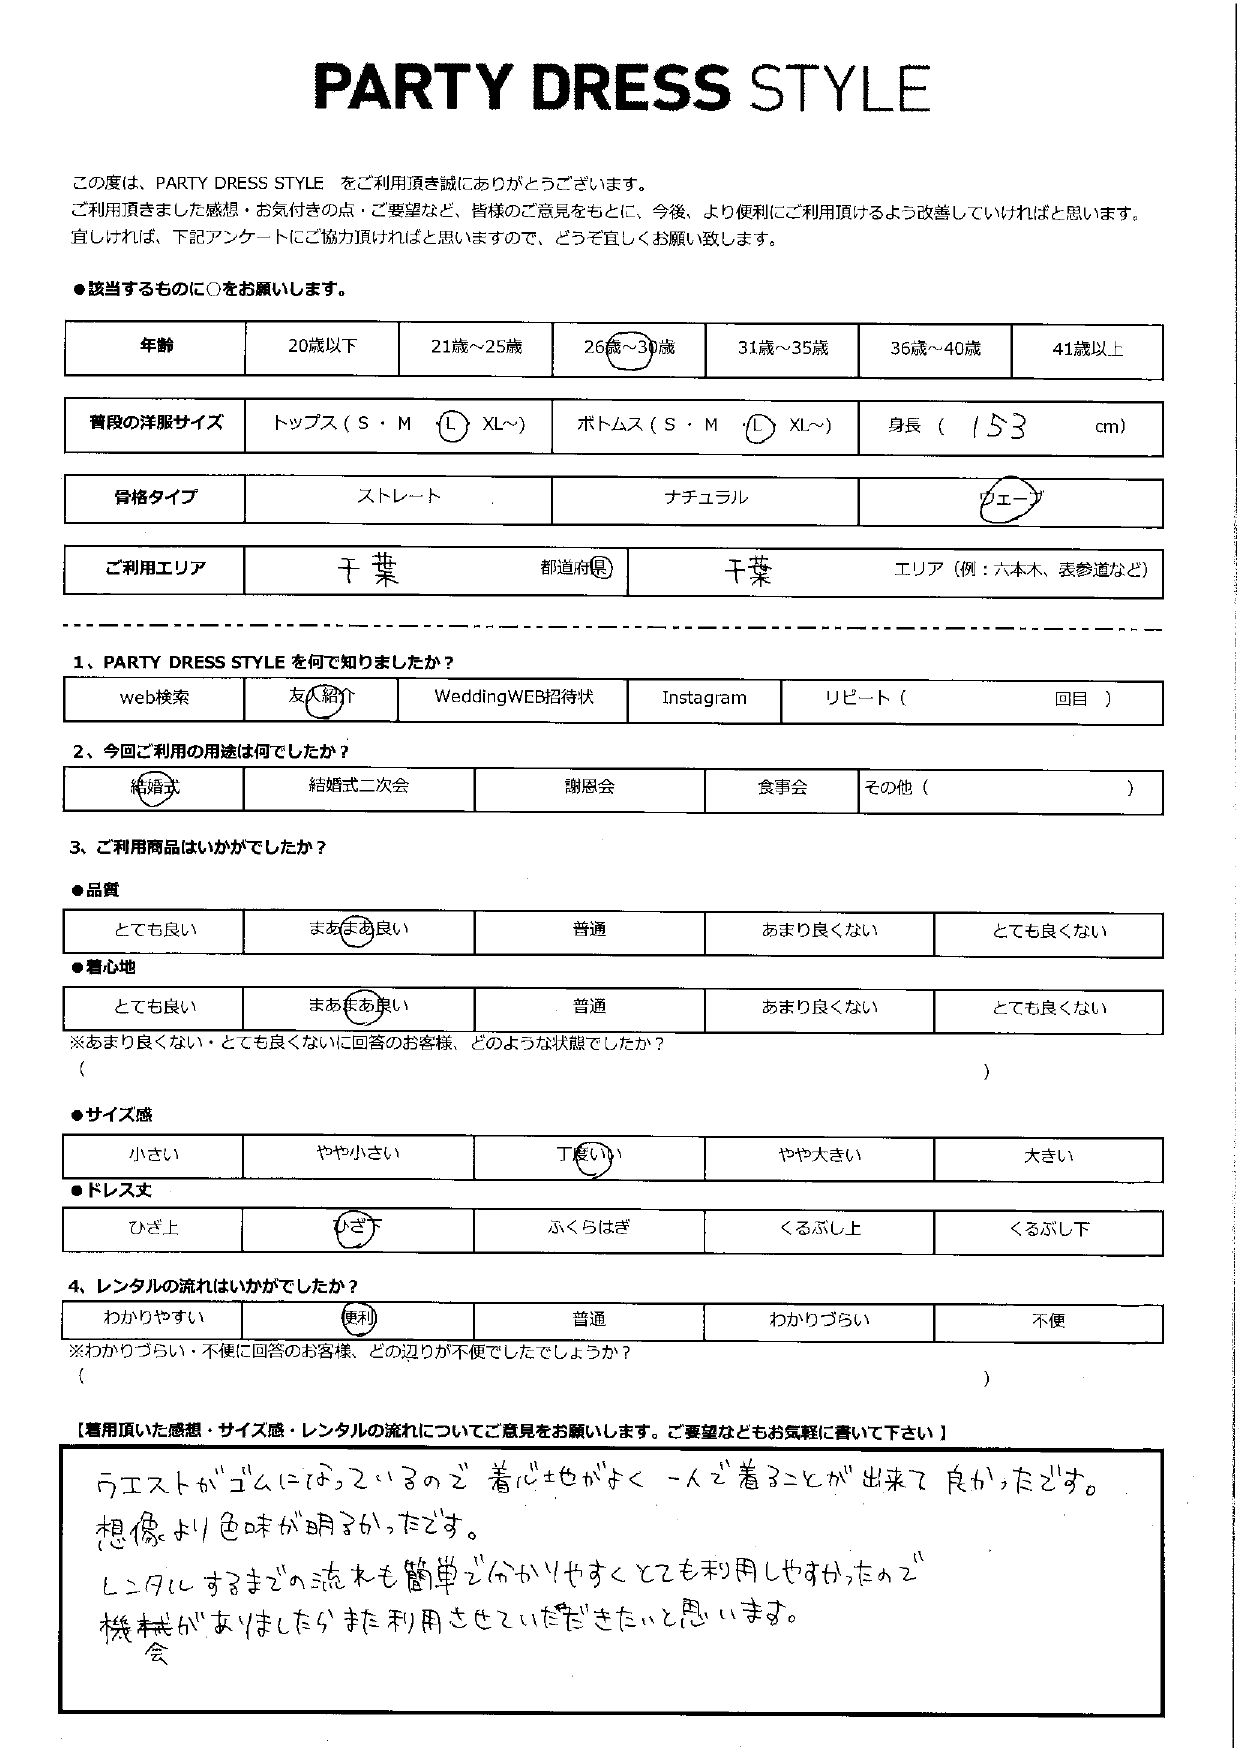 PARTY DRESS STYLE
この度は、PARTY DRESS STYLE をご利用頂き誠にありがとうございます。
ご利用頂きました感想・お気付きの点・ご要望など、皆様のご意見をもとに、今後、より便利にご利用頂けるよう改善していければと思います。
宜しければ、下記アンケートにご協力頂ければと思いますので、どうぞ宜しくお願い致します。
●該当するものに○をお願いします。
年齢 20歳以下 21歳～25歳 26歳～30歳 31歳～35歳 36歳～40歳 41歳以上
普段の洋服サイズ トップス ( S ・ M ・ L ・ XL～) ボトムス ( S ・ M ・ L ・ XL～) 身長 ( 153 cm)
骨格タイプ ストレート ナチュラル ウェーブ
ご利用エリア 千葉 都道府県 千葉 エリア（例：六本木、表参道など）
1、PARTY DRESS STYLE を何で知りましたか？
web検索 友人紹介 WeddingWEB招待状 Instagram リピート（ 回目 ）
2、今回ご利用の用途は何でしたか？
結婚式 結婚式二次会 謝恩会 食事会 その他（ ）
3、ご利用商品はいかがでしたか？
●品質
とても良い まあまあ良い 普通 あまり良くない とても良くない
●着心地
とても良い まあまあ良い 普通 あまり良くない とても良くない
※あまり良くない・とても良くないに回答のお客様、どのような状態でしたか？
( )
●サイズ感
小さい やや小さい 丁度いい やや大きい 大きい
●ドレス丈
ひざ上 ひざ下 ふくらはぎ くるぶし上 くるぶし下
4、レンタルの流れはいかがでしたか？
わかりやすい 便利 普通 わかりづらい 不便
※わかりづらい・不便に回答のお客様、どの辺りが不便でしたでしょうか？
( )
【着用頂いた感想・サイズ感・レンタルの流れについてご意見をお願いします。ご要望などもお気軽に書いて下さい 】
ウエストがゴムになっているので 着心地がよく 一人で着ることが出来て 良かったです。
想像より色味が明るかったです。
レンタルするまでの流れも簡単で分かりやすくとても利用しやすかったので
機械がありましたらまた利用させていただきたいと思います。
会